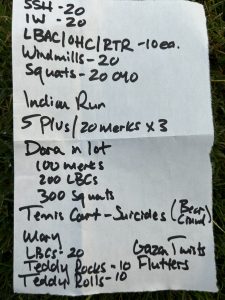 SSH - 20
IW - 20
LBAC/OHC/RTR - 10 ea.
Windmills - 20
Squats - 20
Indian Run
5 Plus/20 merks x 3
Dora in lot
100 merks
200 LBCs
300 Squats
Tennis Cort - Suicides (Bear Crawl)
Mary
LBCs - 20
Gaza Twists
Teddy Rocks - 10 Flutters
Teddy Rolls - 10